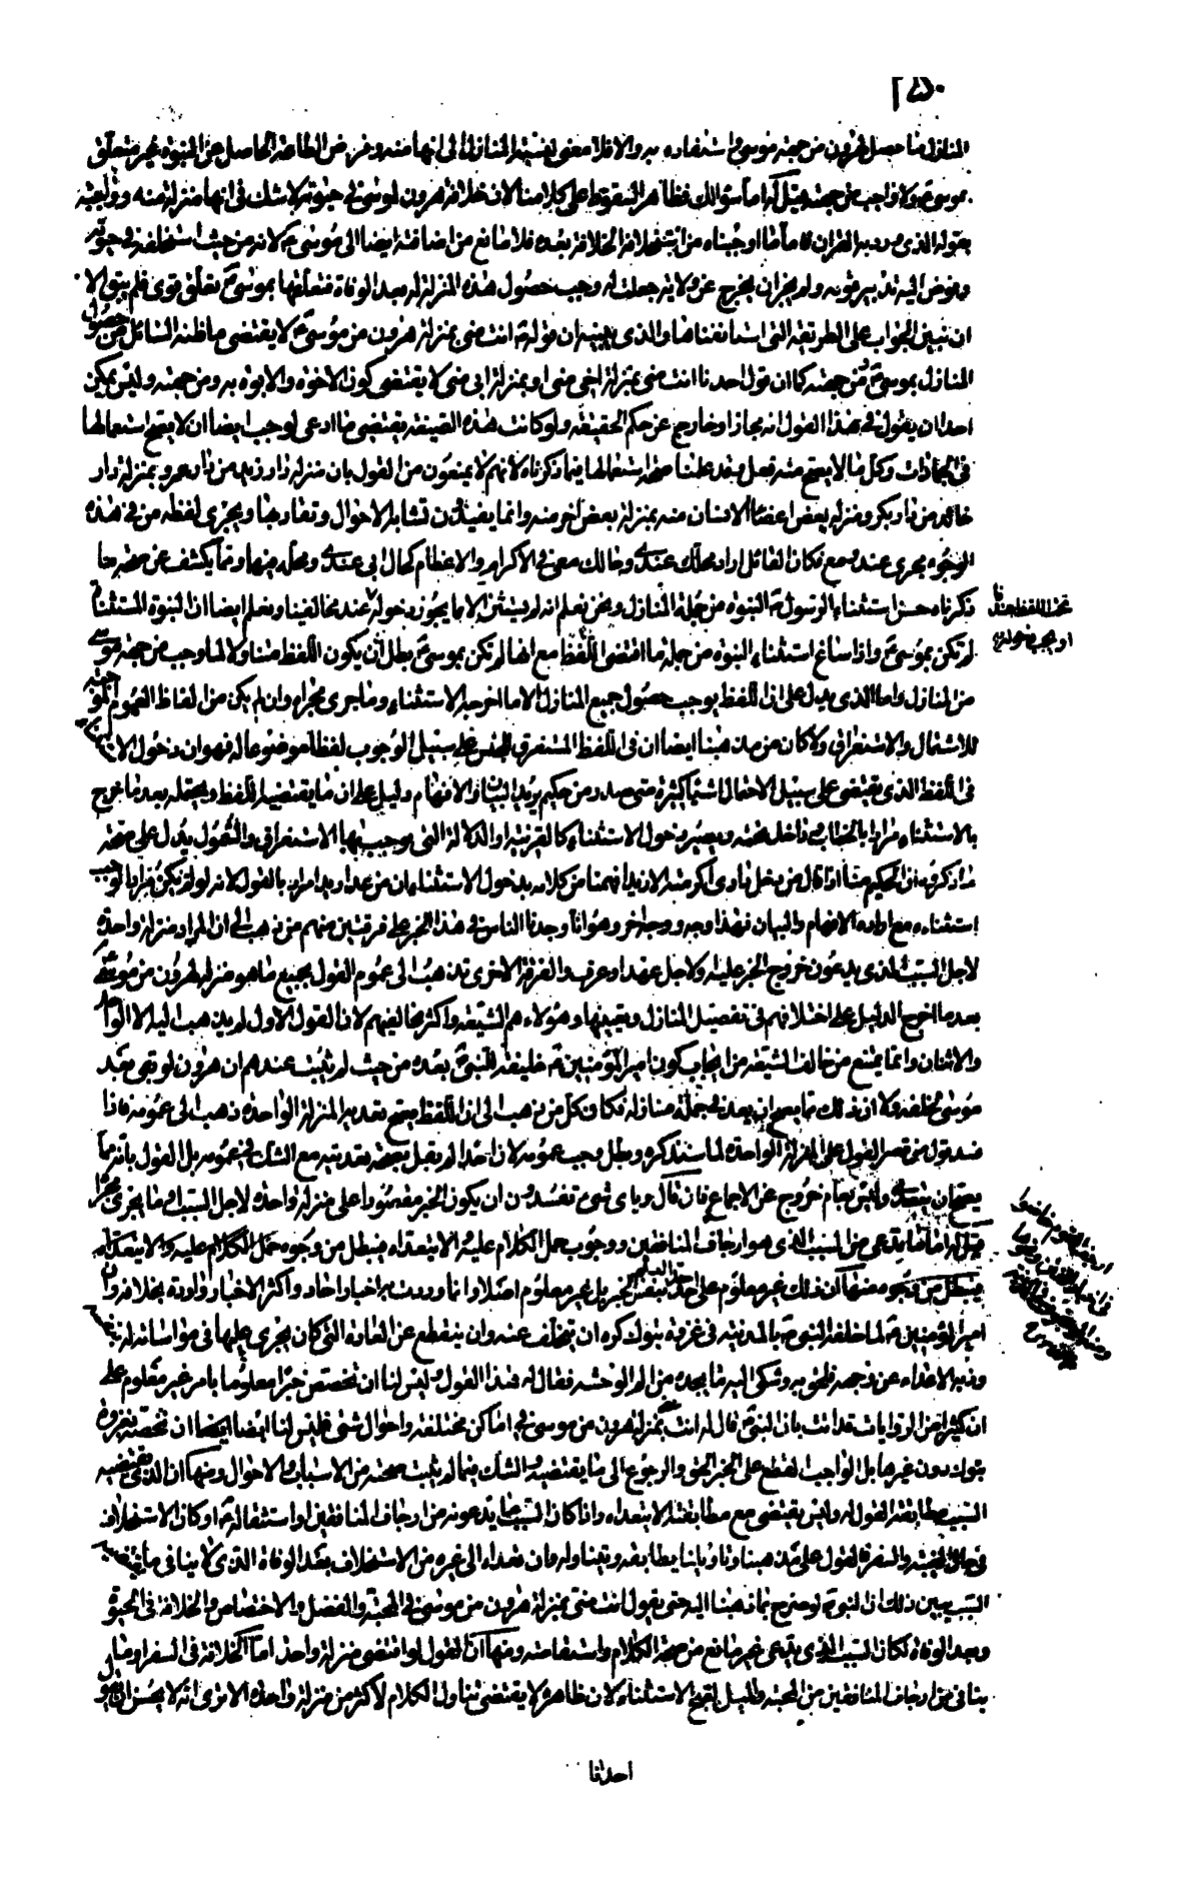 ٢٥٠
المنازل ما حصل لهرون من جهة موسى واستفاده به والا فلا معنى لنسبة المنازل الى انها منه وفرض الطاعة الحاصل عن النبوة غير متعلق
بموسى ولا واجب من جهته قيل له اما سؤالك فظاهر السقوط على كلامنا لان خلافة هرون لموسى في حيوته لا شك في انها منزلة منه وواجبة
بقوله الذي ورد به القران فاما ما اوجبناه من استخلافه الخلافة بعده فلا مانع من اضافته ايضا الى موسى لانه من حيث استخلفه في حيوته
وفوض اليه تدبير قومه ولم يجز ان يخرج عن ولاية جعلت له وجب حصول هذه المنزلة له بعد الوفاة فتعلقها بموسى تعلق قوى فلم يبق الا
ان نبين الجواب على الطريقة التي استانفناها والذي يبينه ان قوله انت مني بمنزلة هرون من موسى لا يقتضي ما ظنه السائل من حصول
المنازل بموسى ومن جهته كما ان قول احدنا انت مني بمنزلة اخي مني او بمنزلة ابي مني لا يقتضي كون الاخوة والابوة به ومن جهته وليس يمكن
احدا ان يقول في هذا القول انه مجاز او خارج عن حكم الحقيقة ولو كانت هذه الصيغة يقتضي ما ادعى لوجب ايضا ان لا يصح استعمالها
في الجمادات وكل ما لا يصح منه فعل وقد علمنا صحة استعمالها فيما ذكرناه لانهم لا يمنعون من القول بان منزلة دار زيد من دار عمرو بمنزلة دار
خالد من دار بكر ومنزلة بعض اعضاء الانسان منه بمنزلة بعض اخر منه وانما يفيدون تشابه الاحوال وتقاربها ويجري لفظه من في هذه
الوجوه مجرى عند ومع فكان القائل اراد محلك عندي وحالك معي في الاكرام والاعظام كحال ابي عندي ومحله فيهما ومما يكشف عن صحة ما
ذكرناه حسن استثناء الرسول النبوة من جملة المنازل ونحن نعلم انه لم يستثن الا ما يجوز دخوله عند مخالفينا ونعلم ايضا ان النبوة المستثناة
تحت اللفظ عندنا
او يجب دخوله
لم تكن بموسى واذا ساغ استثناء النبوة من جملة ما اقتضى اللفظ مع انها لم تكن بموسى بطل ان يكون اللفظ متناولا لما وجب من جهة موسى
من المنازل واما الذي يدل على ان اللفظ يوجب حصول جميع المنازل الا ما اخرجه الاستثناء وما جرى مجراه وان لم يكن من الفاظ العموم الموجبة
للاشتمال والاستغراق ولا كان من مذهبنا ايضا ان في اللفظ المستغرق للجنس على سبيل الوجوب لفظا موضوعا له فهو ان دخول الاستثناء
في اللفظ الذي يقتضي على سبيل الاحتمال اشياء كثيرة متى صدر من حكيم يريد البيان والافهام دليل على ان ما يقتضيه اللفظ ويحتمله بعد ما خرج
بالاستثناء مراد بالخطاب داخل تحته ويصير دخول الاستثناء كالقرينة او الدلالة التي يوجب بها الاستغراق والشمول يدل على صحة
ما ذكرنا ان الحكيم منا اذا قال من دخل داري اكرمته الا زيدا فهمنا من كلامه بدخول الاستثناء ان من عدا زيد مراد بالقول لانه لو لم يكن مرادا لوجب
استثناءه مع ارادة الافهام والبيان فهذا وجه ووجه اخر وهو انا وجدنا الناس في هذا الخبر على فرقتين منهم من ذهب الى ان المراد منزلة واحدة
لاجل السبب الذي يدعون خروج الخبر عليه ولاجل عهد او عرف والفرقة الاخرى تذهب الى عموم القول بجميع ما هو منزلة لهرون من موسى
بعد ما اخرج الدليل على اختلافهم في تفصيل المنازل وتعيينها وهؤلاء هم الشيعة واكثر مخالفيهم لان القول الاول لم يذهب اليه الا الواحد
والاثنان وانما يمتنع من خالف الشيعة من ايجاب كون امير المؤمنين خليفة للنبي بعده من حيث لم يثبت عندهم ان هرون لو بقي بعد
موسى لخلفه ولا ان ذلك مما يصح ان يعد في جملة منازله فكان كل من ذهب الى ان اللفظ يصح تعديه المنزلة الواحدة ذهب الى عمومه فاذا
فسد قول من قصر القول على المنزلة الواحدة لما سنذكره وبطل وجب عمومه لان احدا لم يقل بصحة تعديه مع الشك في عمومه بل القول بانه مما
يصح ان يتعدى وليس بعام خروج عن الاجماع فان قال وباي شيء تفسدون ان يكون الخبر مقصورا على منزلة واحدة لاجل السبب او ما يجري مجراه
قيل له اما ما يدعى من السبب الذي هو ارجاف المنافقين ووجوب حمل الكلام عليه والا يتعداه فيبطل من وجوه حمل الكلام عليه والا يتعداه
فيبطل من وجوه منها ان ذلك غير معلوم على حد نفس الخبر بل غير معلوم اصلا وانما وردت به اخبار احاد واكثر الاخبار واردة بخلافه وان
امير المؤمنين لما خلفه النبي بالمدينة في غزوة تبوك كره ان يتخلف عنه وان ينقطع عن العادة التي كان يجري عليها في مواساته له
وذبه الاعداء عن وجهه فلحق به وشكى اليه ما يجده من الم الوحشة فقال له هذا القول وليس لنا ان نخصص خبرا معلوما بامر غير معلوم على
ان كثيرا من الروايات قد اتت بان النبي قال له انت مني بمنزلة هرون من موسى في اماكن مختلفة واحوال شتى فليس لنا ايضا ان نخصه بغزوة
تبوك دون غيرها بل الواجب القطع على الخبر والرجوع الى ما يقتضيه والشك فيما لم يثبت صحته من الاسباب والاحوال ومنها ان الذي يقتضيه
السبب مطابقة القول له وليس يقتضي مع مطابقته الا يتعداه واذا كان السبب ما يدعونه من ارجاف المنافقين او استثقاله او كان الاستخلاف
في حال الغيبة والسفر فالقول على مذهبنا وتاويلنا يطابقه ويتناوله وان تعداه الى غيره من الاستخلاف بعد الوفاة الذي لا ينافي ما يقتضيه
السبب يبين ذلك ان النبي لو صرح بما ذهبنا اليه حتى يقول انت مني بمنزلة هرون من موسى في المحبة والفضل والاختصاص والخلافة في الحيوة
وبعد الوفاة لكان السبب الذي يدعى غير مانع من صحة الكلام واستقامته ومنها ان القول لو اقتضى منزلة واحدة اما الخلافة في السفر او ما
ينافي من ارجاف المنافقين من المحبة والميل لقبح الاستثناء لان ظاهره لا يقتضي تناول الكلام لاكثر من منزلة واحدة الا ترى انه لا يحسن ان يقول
احدنا